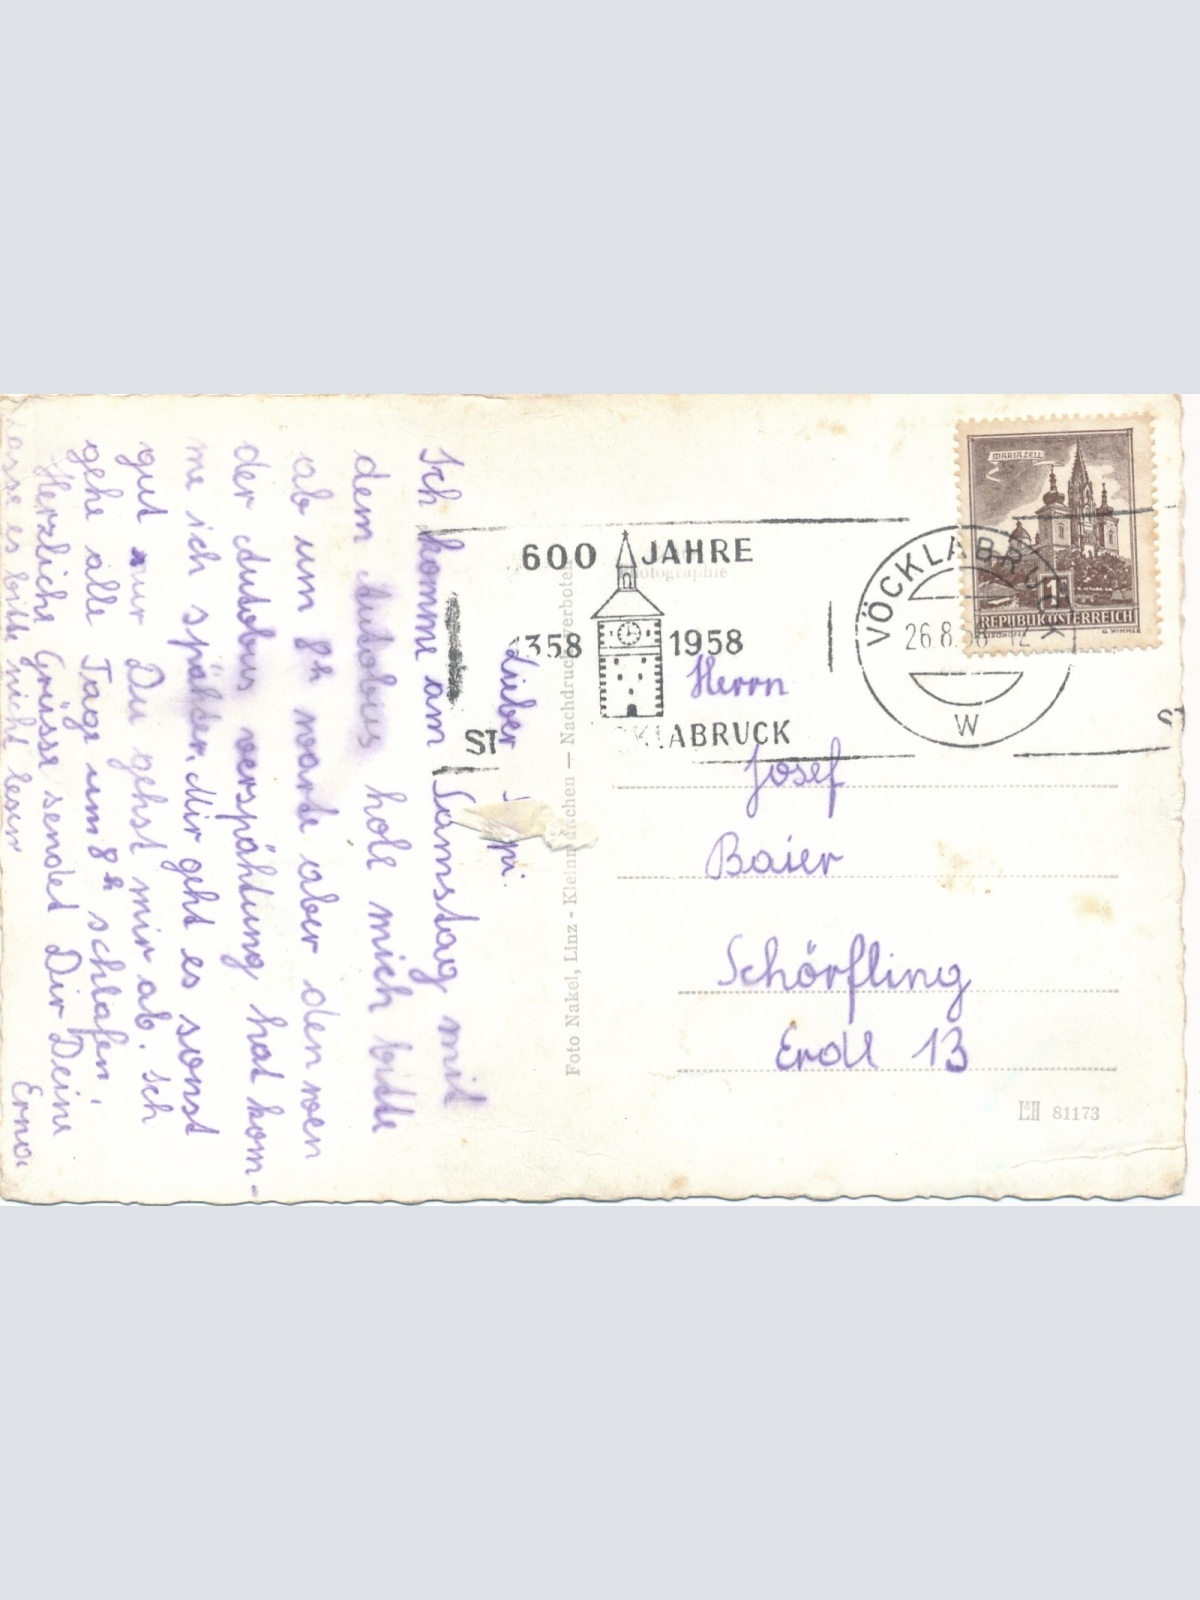 Lieber
Ich komme am Samstag mit
dem Autobus hole mich bitte
ab um 8h warte aber denn wen
der Autobus verspähtung hat kom-
me ich später. Mir geht es sonst
gut nur Du gehst mir ab. Ich
gehe alle Tage um 8h schlafen!
Herzliche Grüsse sendet Dir Deine
Erna
Lasse es bitte nicht lesen
Foto Nakel, Linz - Kleinmünchen — Nachdruck verboten
600 JAHRE
1358 1958
ST KLABRUCK
VÖCKLABRUCK
26.8.58 12
W
MARIAZELL
1
REPUBLIK ÖSTERREICH
G. WIMMER
Herrn
Josef
Baier
Schörfling
Erdl 13
L&H 81173